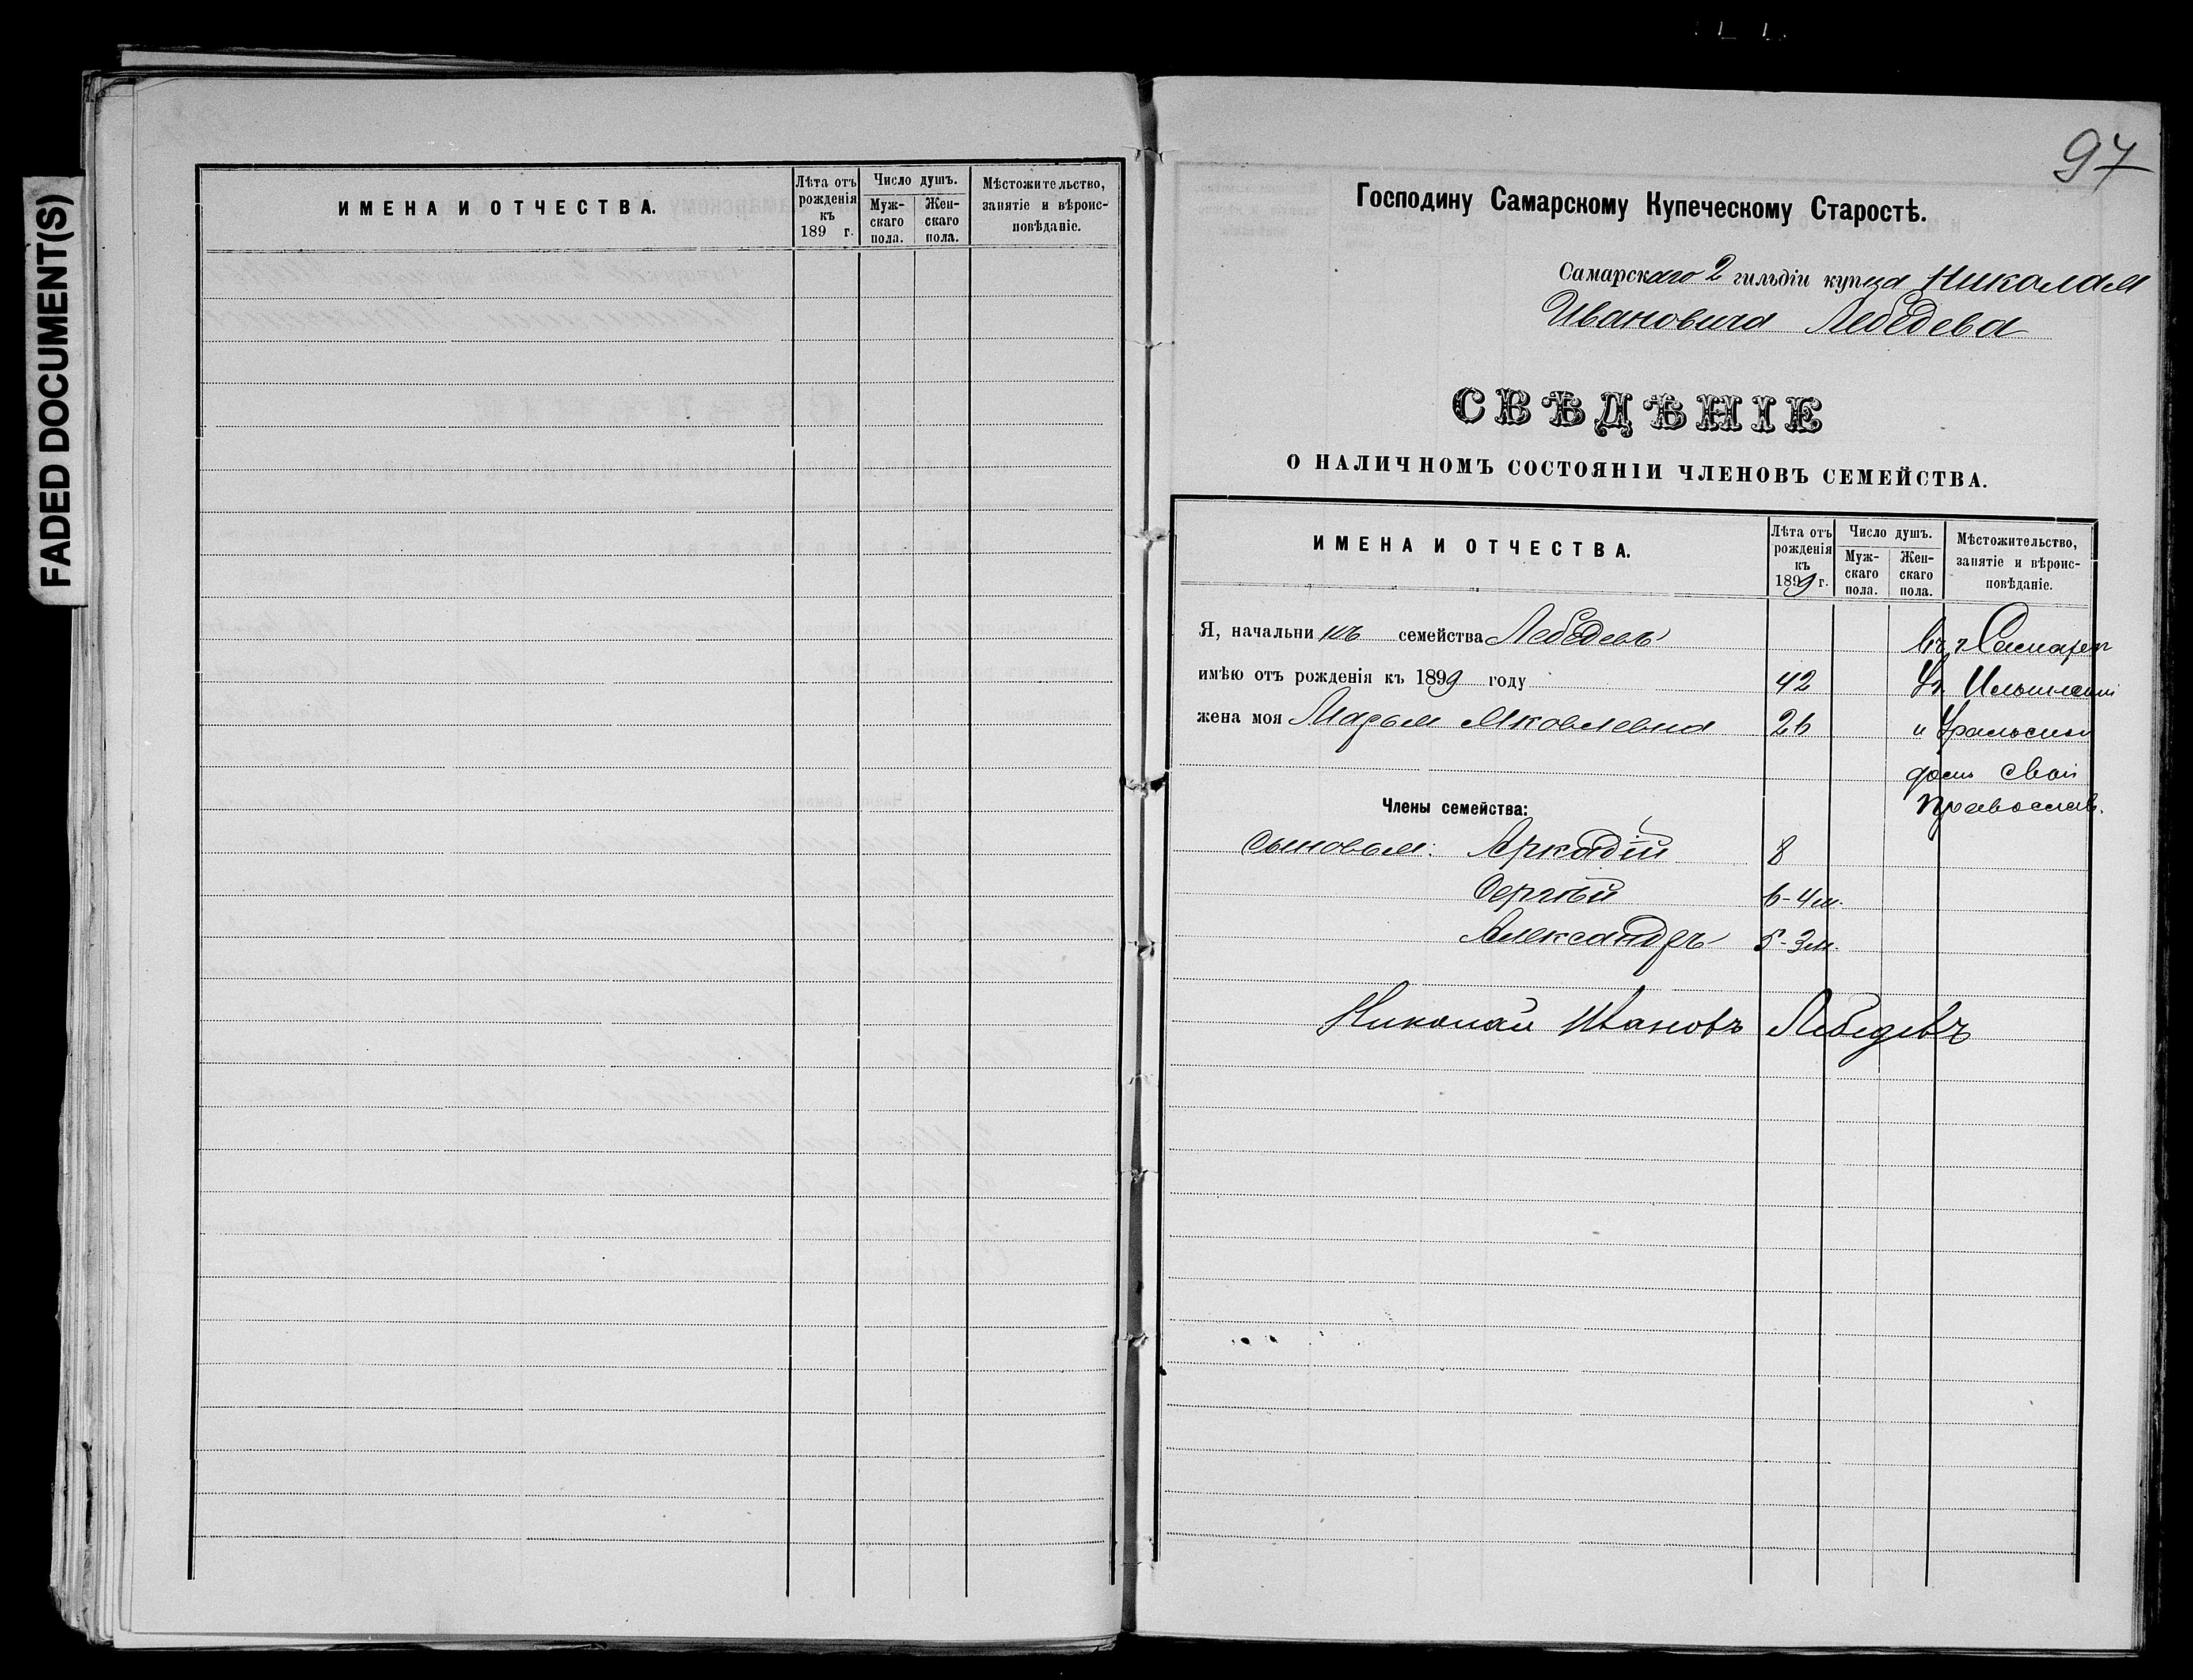 FADED DOCUMENT(S)
ИМЕНА И ОТЧЕСТВА.
Лѣта отъ рожденія къ 189 г.
Число душъ.
Мужскаго пола.
Женскаго пола.
Мѣстожительство, занятіе и вѣроисповѣданіе.
97
Господину Самарскому Купеческому Старостѣ.
Самарскаго 2 гильдіи купца Николая
Ивановича Лебедева
СВѢДѢНІЕ
О НАЛИЧНОМЪ СОСТОЯНІИ ЧЛЕНОВЪ СЕМЕЙСТВА.
ИМЕНА И ОТЧЕСТВА.
Лѣта отъ рожденія къ 1899 г.
Число душъ.
Мужскаго пола.
Женскаго пола.
Мѣстожительство, занятіе и вѣроисповѣданіе.
Я, начальникъ семейства Лебедевъ Въ г Самарѣ
имѣю отъ рожденія къ 1899 году 42 Уг.
жена моя Марья Яковлевна 26 и Уральской
домъ свой
Православ.
Члены семейства:
сыновья: Аркадій 8
Сергѣй 6-4 м.
Александръ 5-3 м.
Николай Ивановъ Лебедевъ